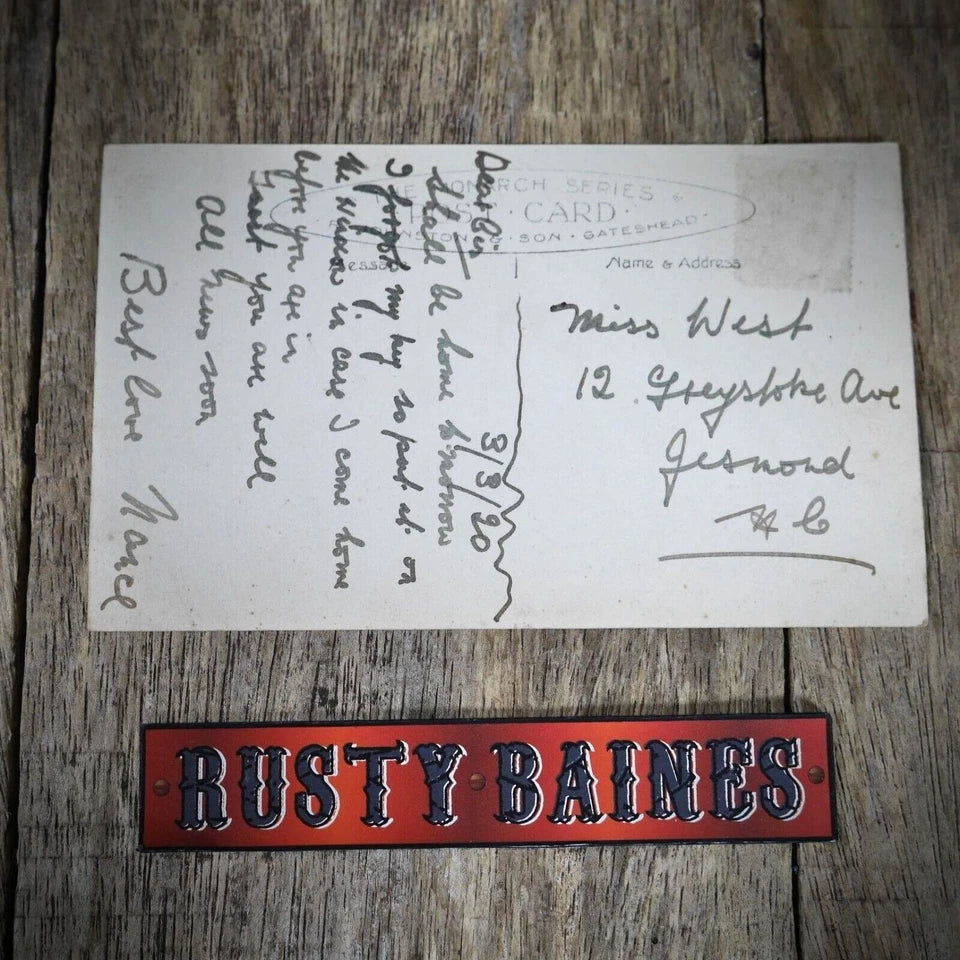 MONARCH SERIES
POST · CARD
& SON · GATESHEAD
Message
Name & Address
3/3/20
Dear Cis
Shall be home tomorrow
I forgot my key so put it on
the window in case I come home
before you are in
you are well
All news soon
Best love Nance
Miss West
12 Greystoke Ave
Jesmond
RUSTY BAINES